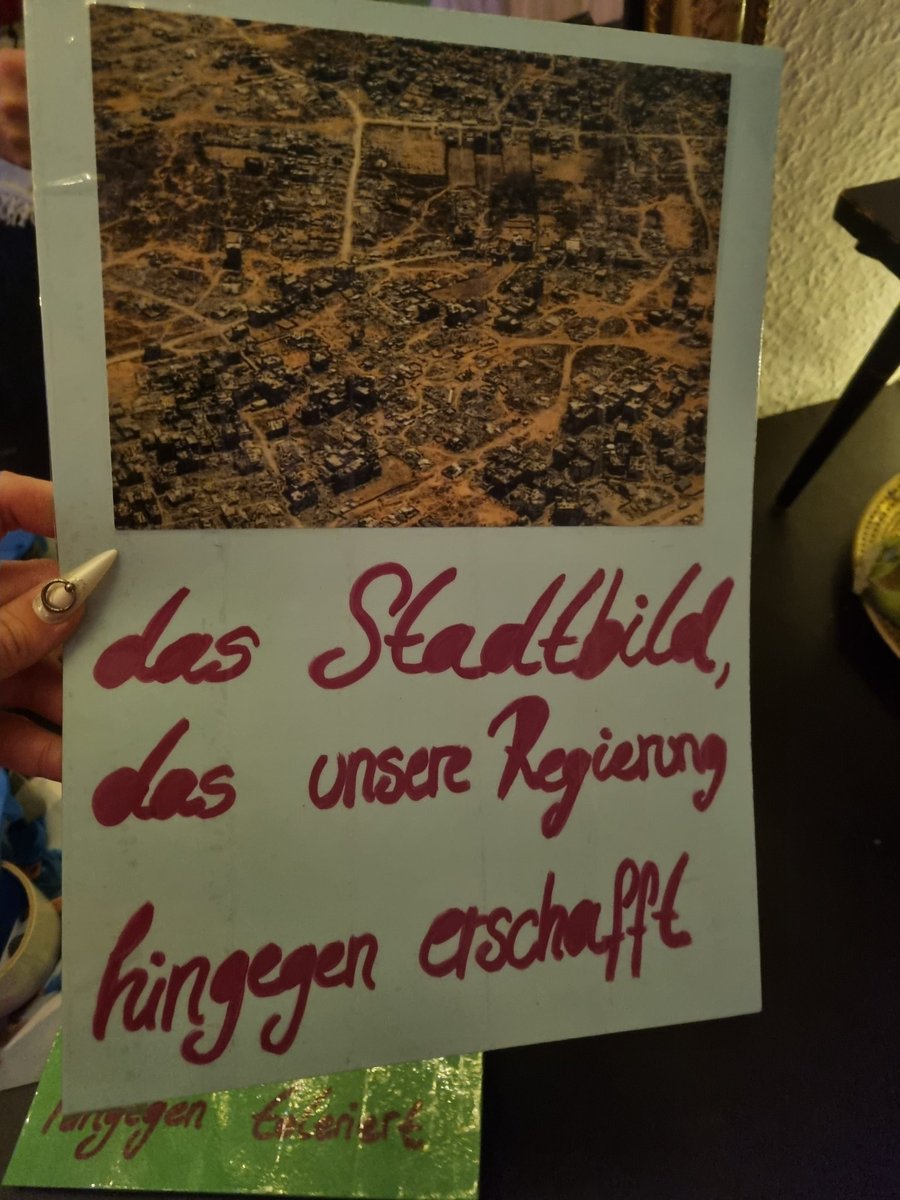 das Stadtbild,
das unsere Regierung
hingegen erschafft
hingegen toleriert